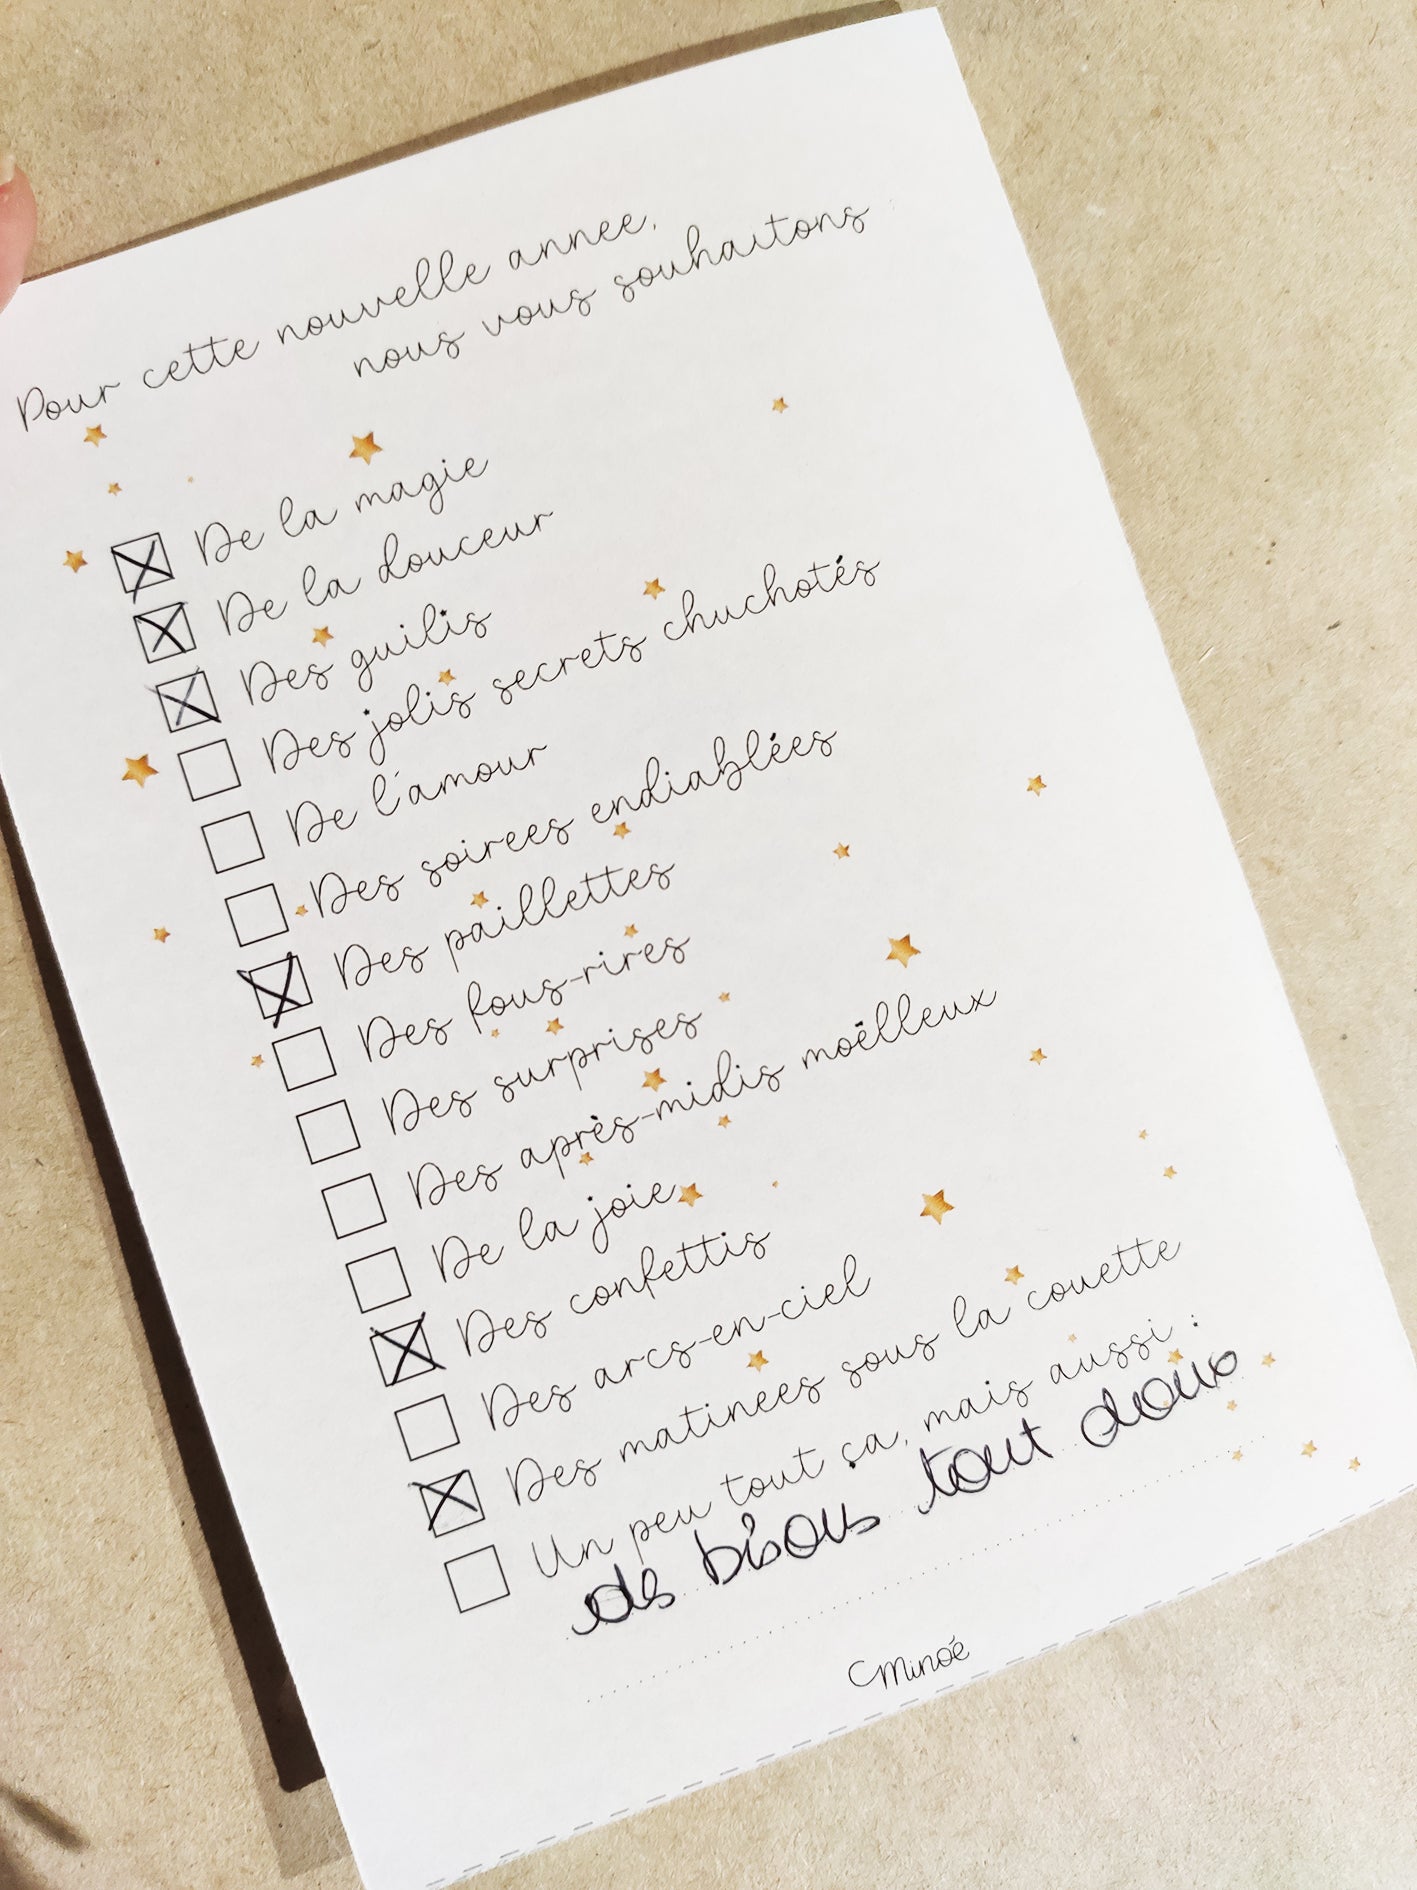 Pour cette nouvelle annee,
nous vous souhaitons
De la magie
De la douceur
Des guilis
Des jolis secrets chuchotés
De l'amour
Des soirees endiablées
Des paillettes
Des fous-rires
Des surprises
Des après-midis moëlleux
De la joie
Des confettis
Des arcs-en-ciel
Des matinees sous la couette
Un peu tout ça, mais aussi :
des bisous tout doux
Minoé